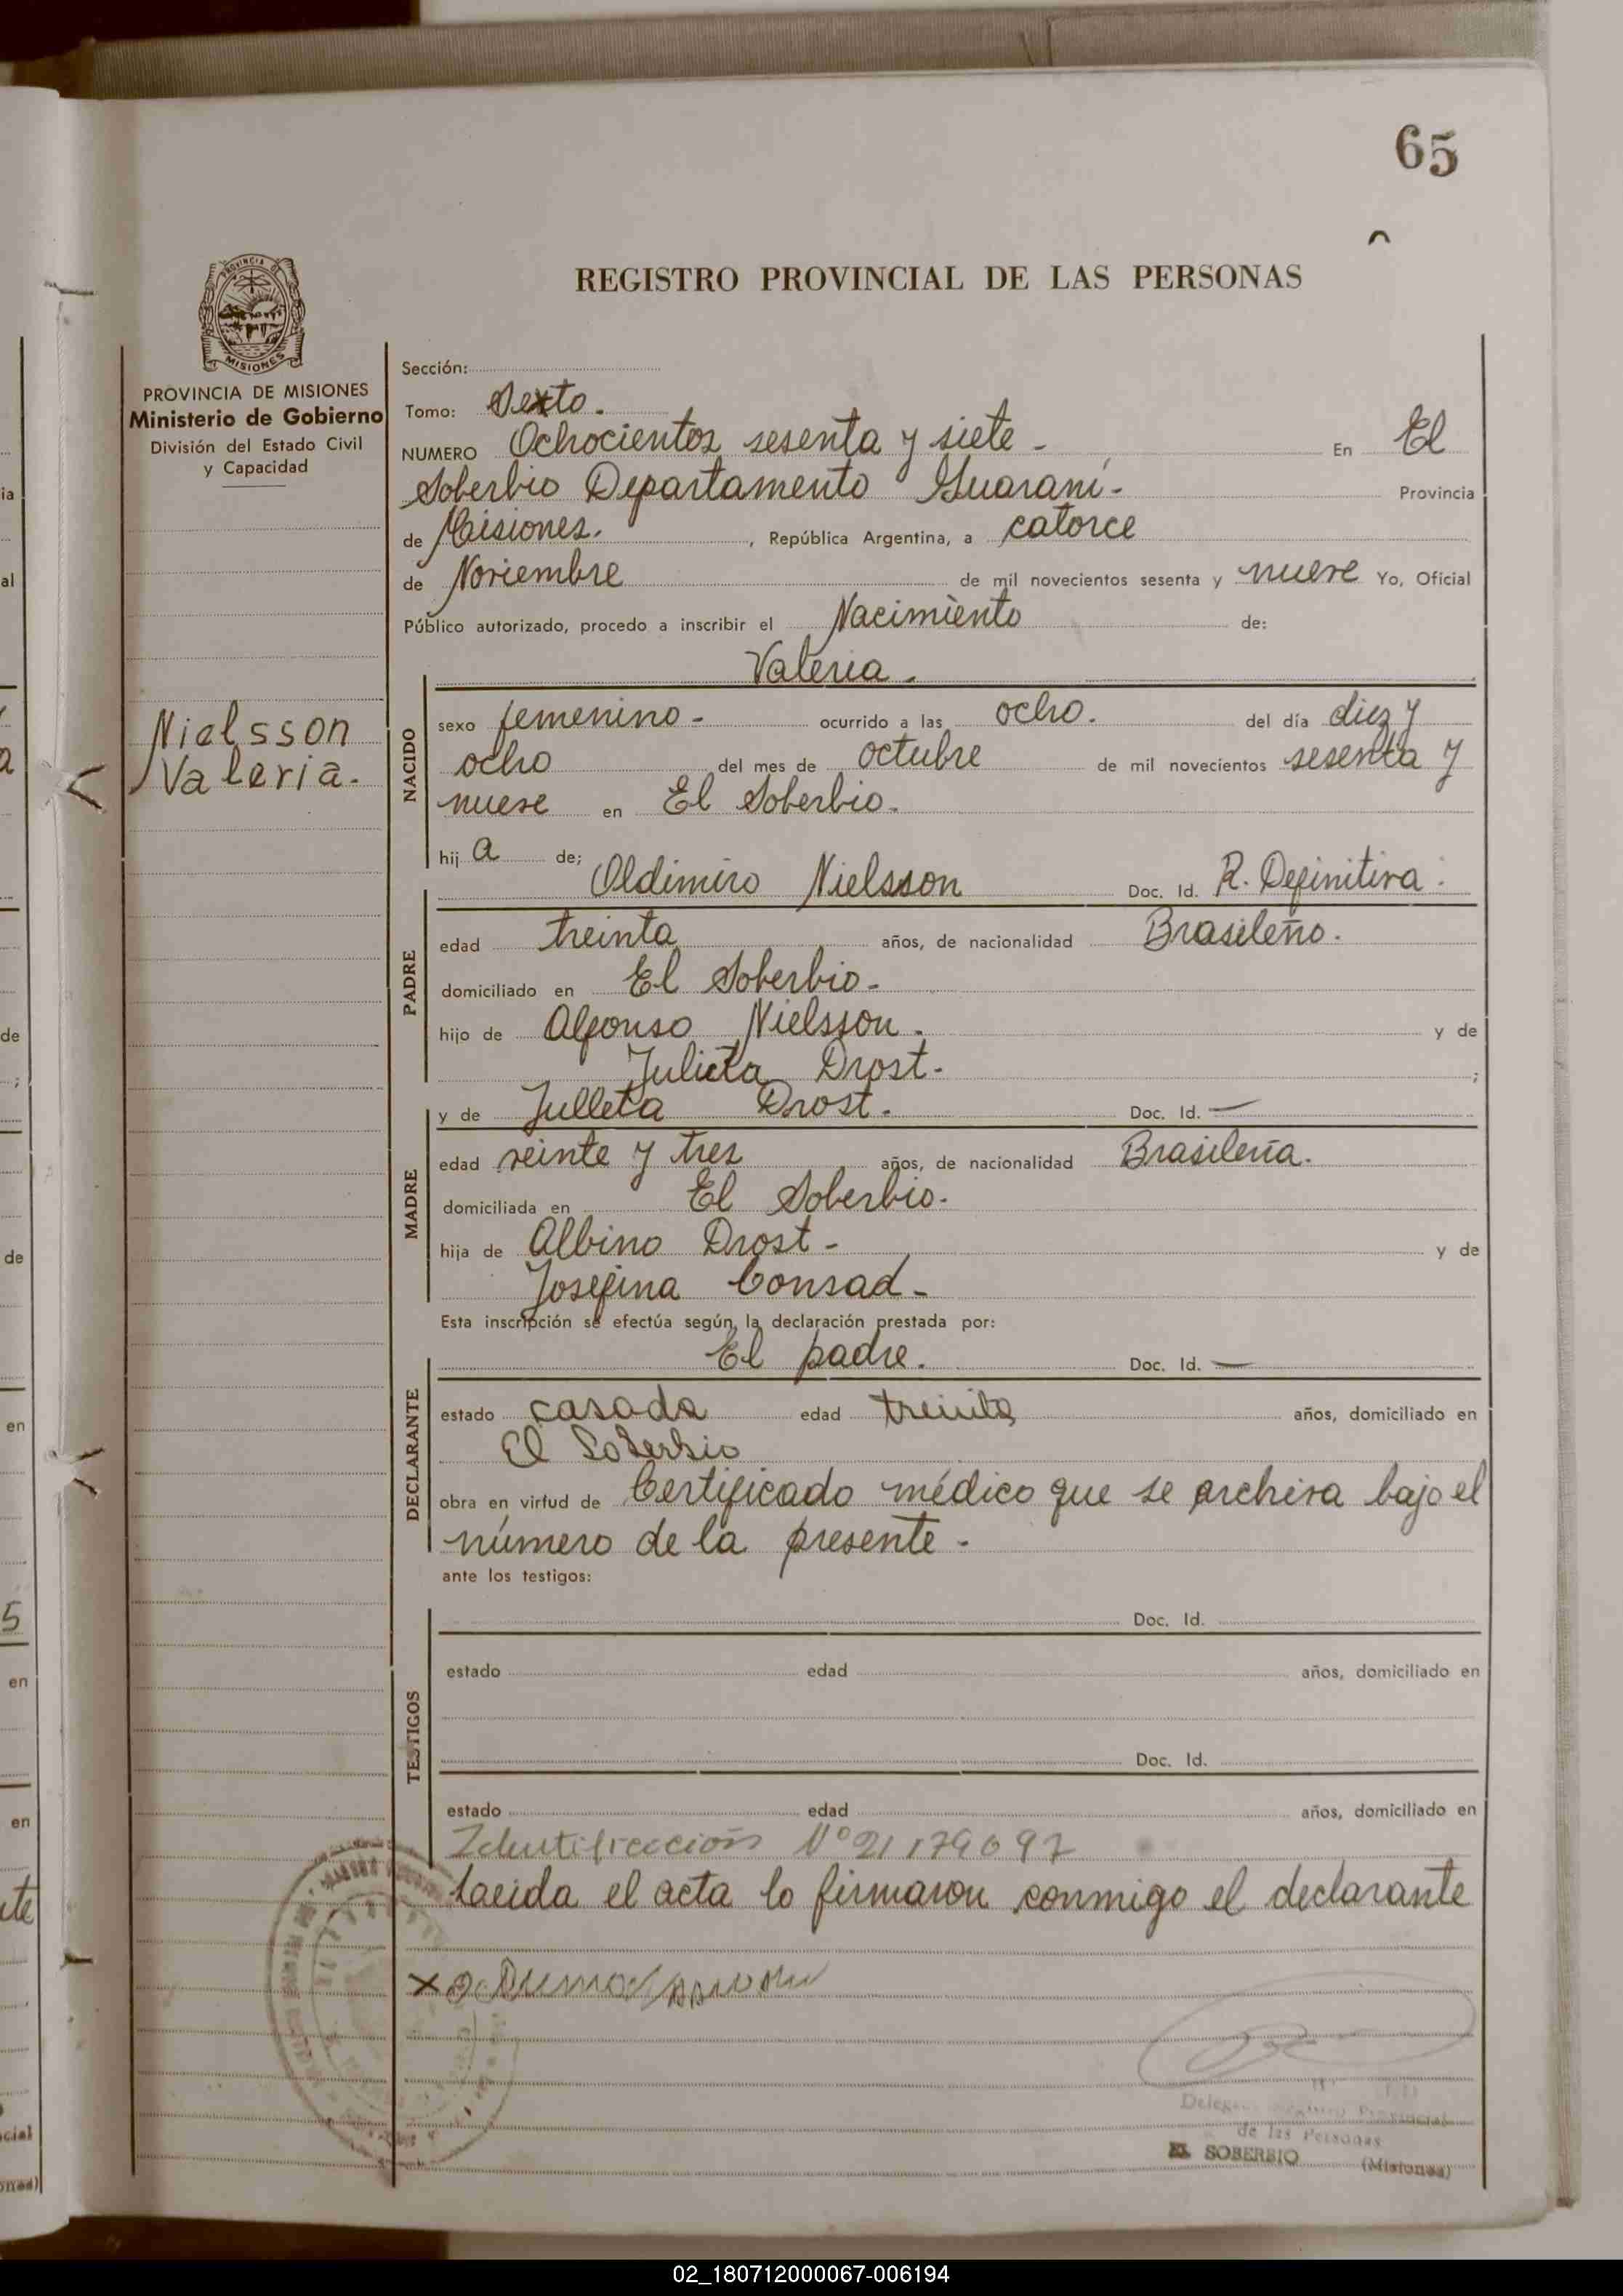 65
REGISTRO PROVINCIAL DE LAS PERSONAS
PROVINCIA DE MISIONES
Ministerio de Gobierno
División del Estado Civil
y Capacidad
Nielsson
Valeria.
Sección:
Tomo: Sexto.
NUMERO Ochocientos sesenta y siete - En El
Soberbio Departamento Guaraní - Provincia
de Misiones. , República Argentina, a catorce
de Noviembre de mil novecientos sesenta y nueve Yo, Oficial
Público autorizado, procedo a inscribir el Nacimiento de:
Valeria.
NACIDO
sexo femenino - ocurrido a las ocho. del día diez y
ocho del mes de octubre de mil novecientos sesenta y
nueve en El Soberbio.
hij a de;
Oldimiro Nielsson Doc. Id. R. Definitiva.
PADRE
edad treinta años, de nacionalidad Brasileño.
domiciliado en El Soberbio -
hijo de Alfonso Nielsson. y de
Julieta Drost - ;
MADRE
y de Julleta Drost. Doc. Id. —
edad veinte y tres años, de nacionalidad Brasileña.
domiciliada en El Soberbio -
hija de Albino Drost - y de
Josefina Conrad -
Esta inscripción se efectúa según la declaración prestada por:
El padre. Doc. Id. —
DECLARANTE
estado casada edad treinta años, domiciliado en
El Soberbio
obra en virtud de Certificado médico que se archiva bajo el
número de la presente -
ante los testigos:
TESTIGOS
Doc. Id.
estado edad años, domiciliado en
Doc. Id.
estado edad años, domiciliado en
Identificación Nº 21179097
Laeida el acta lo firmaron conmigo el declarante
X
de las Personas
EL SOBERBIO (Misiones)
02_180712000067-006194